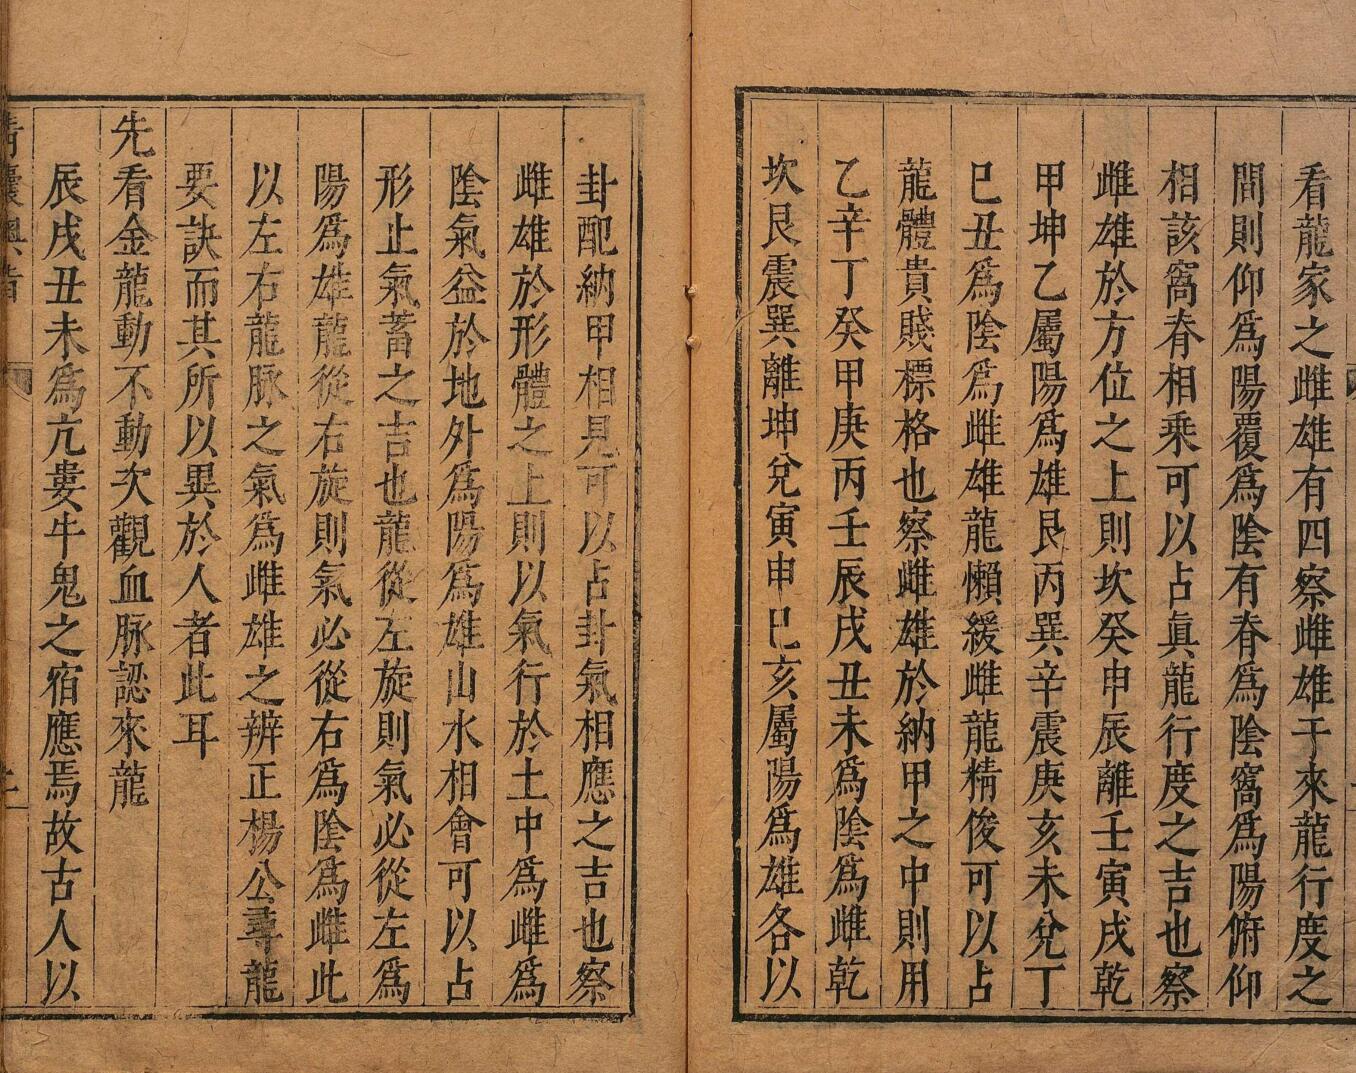 看龍家之雌雄有四察雌雄于來龍行度之
間則仰爲陽覆爲陰有脊爲陰窩爲陽俯仰
相該窩脊相乘可以占眞龍行度之吉也察
雌雄於方位之上則坎癸申辰離壬寅戌乾
甲坤乙屬陽爲雄艮丙巽辛震庚亥未兌丁
巳丑爲陰爲雌雄龍懶緩雌龍精俊可以占
龍體貴賤標格也察雌雄於納甲之中則用
乙辛丁癸甲庚丙壬辰戌丑未爲陰爲雌乾
坎艮震巽離坤兌寅申巳亥屬陽爲雄各以
卦配納甲相見可以占卦氣相應之吉也察
雌雄於形體之上則以氣行於土中爲雌爲
陰氣益於地外爲陽爲雄山水相會可以占
形止氣蓄之吉也龍從左旋則氣必從左爲
陽爲雄龍從右旋則氣必從右爲陰爲雌此
以左右龍脉之氣爲雌雄之辨正楊公尋龍
要訣而其所以異於人者此耳
先看金龍動不動次觀血脉認來龍
辰戌丑未爲亢婁牛鬼之宿應焉故古人以
青囊奧旨